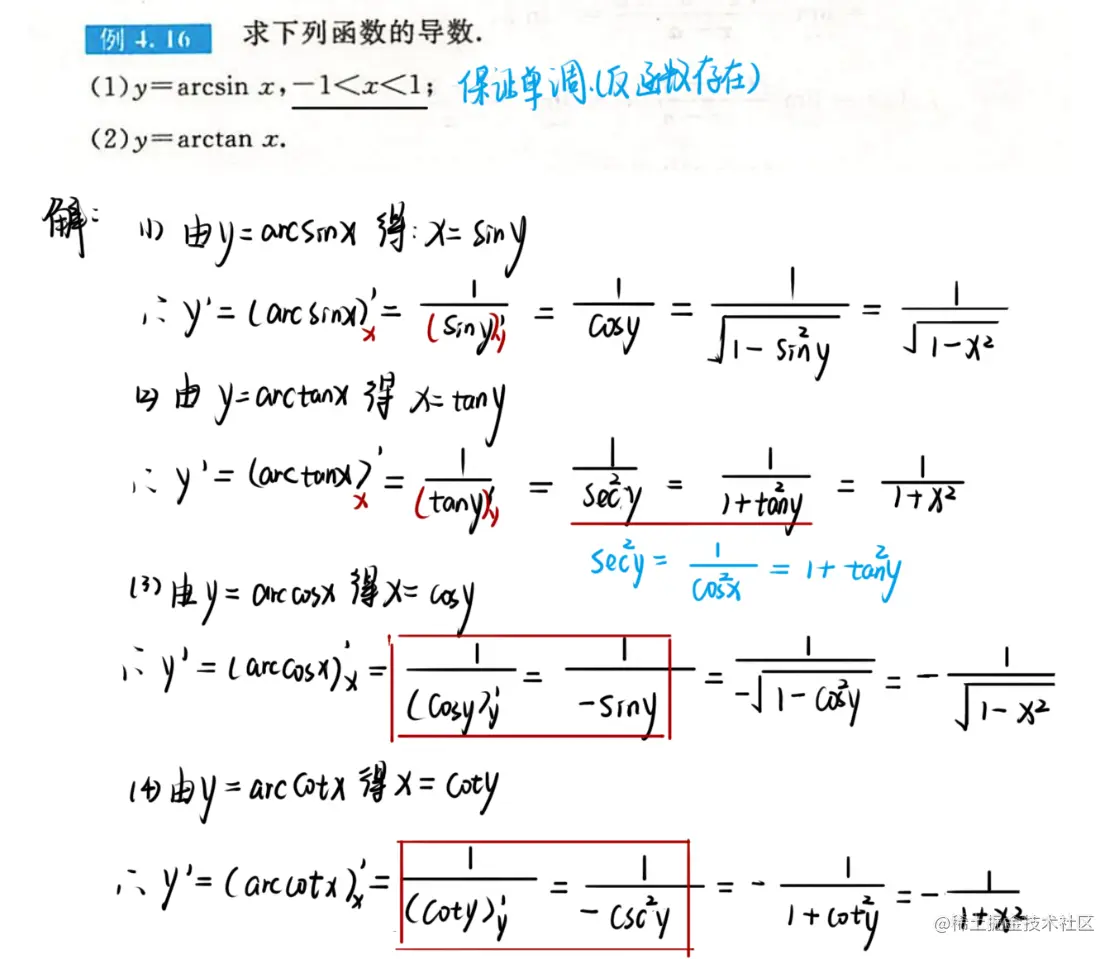 例 4.16 求下列函数的导数.
(1) y=arcsin x, -1<x<1; 保证单调.(反函数存在)
(2) y=arctan x.
解: (1) 由y=arcsinx 得: x=siny
∴ y'=(arcsinx)'ₓ = 1/(siny)'_y = 1/cosy = 1/√(1-sin²y) = 1/√(1-x²)
(2) 由 y=arctanx 得 x=tany
∴ y'=(arctanx)'ₓ = 1/(tany)'_y = 1/sec²y = 1/(1+tan²y) = 1/(1+x²)
sec²y = 1/cos²x = 1+tan²y
(3) 由y=arccosx 得x=cosy
∴ y'=(arccosx)'ₓ = 1/(cosy)'_y = 1/(-siny) = 1/(-√(1-cos²y)) = -1/√(1-x²)
(4) 由y=arccotx 得x=coty
∴ y'=(arccotx)'ₓ = 1/(coty)'_y = 1/(-csc²y) = -1/(1+cot²y) = -1/(1+x²)
@稀土掘金技术社区